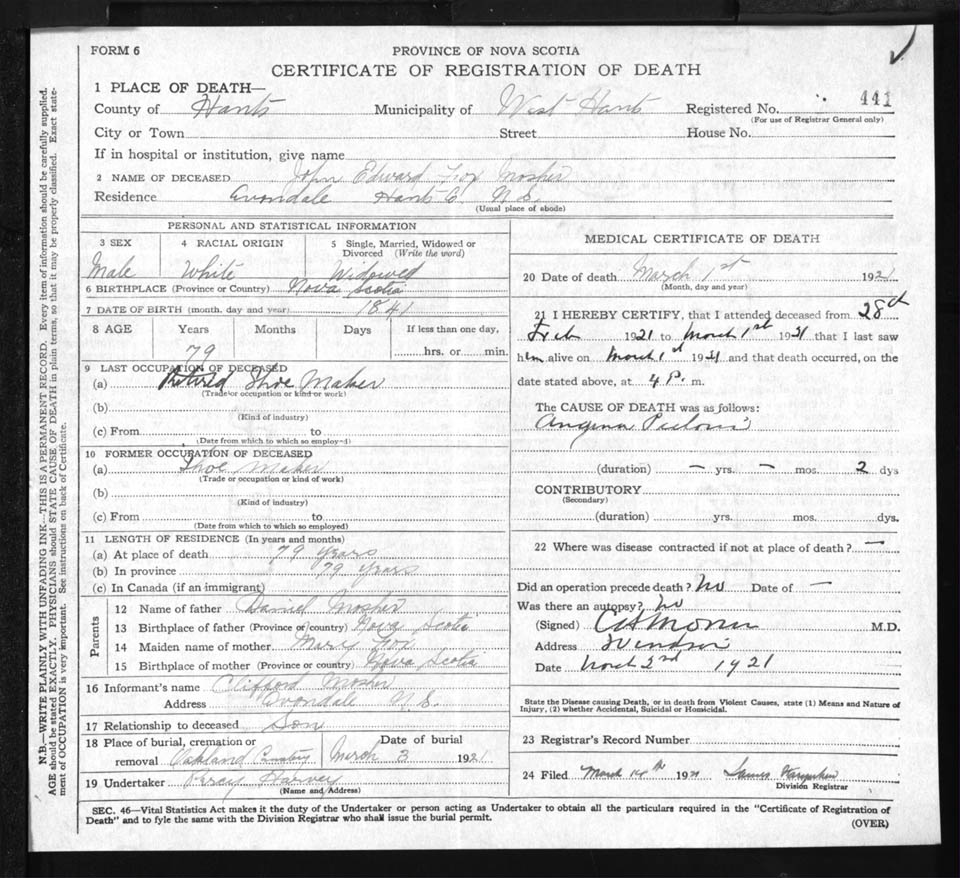 FORM 6
PROVINCE OF NOVA SCOTIA
CERTIFICATE OF REGISTRATION OF DEATH
1 PLACE OF DEATH—
County of Hants Municipality of West Hants Registered No. 441
(For use of Registrar General only)
City or Town Street House No.
If in hospital or institution, give name
2 NAME OF DECEASED John Edward Fox Mosher
Residence Avondale Hants Co. N.S.
(Usual place of abode)
PERSONAL AND STATISTICAL INFORMATION
3 SEX 4 RACIAL ORIGIN 5 Single, Married, Widowed or
Divorced (Write the word)
Male White Widowed
6 BIRTHPLACE (Province or Country) Nova Scotia
7 DATE OF BIRTH (month. day and year) 1841
8 AGE Years Months Days If less than one day,
79 hrs. or min.
9 LAST OCCUPATION OF DECEASED
(a) Retired Shoe Maker
(Trade or occupation or kind or work)
(b)
(Kind of industry)
(c) From to
(Date from which to which so employed)
10 FORMER OCCUPATION OF DECEASED
(a) Shoe Maker
(Trade or occupation or kind of work)
(b)
(Kind of industry)
(c) From to
(Date from which to which so employed)
11 LENGTH OF RESIDENCE (In years and months)
(a) At place of death 79 years
(b) In province 79 years
(c) In Canada (if an immigrant)
Parents
12 Name of father Daniel Mosher
13 Birthplace of father (Province or country) Nova Scotia
14 Maiden name of mother Mary Fox
15 Birthplace of mother (Province or country) Nova Scotia
16 Informant's name Clifford Mosher
Address Avondale N.S.
17 Relationship to deceased Son
18 Place of burial, cremation or Date of burial
removal Oakland Cemetery March 3 1921
19 Undertaker Percy Harvey
(Name and Address)
MEDICAL CERTIFICATE OF DEATH
20 Date of death March 1st 1921
(Month, day and year)
21 I HEREBY CERTIFY, that I attended deceased from 28th
Feb 1921 to March 1st 1921 that I last saw
him alive on March 1st 1921 and that death occurred, on the
date stated above, at 4 P. m.
The CAUSE OF DEATH was as follows:
Angina Pectoris
(duration) — yrs. — mos. 2 dys
CONTRIBUTORY
(Secondary)
(duration) yrs. mos. dys.
22 Where was disease contracted if not at place of death? —
Did an operation precede death? No Date of —
Was there an autopsy? No
(Signed) M.D.
Address Windsor
Date March 2nd 1921
State the Disease causing Death, or in death from Violent Causes, state (1) Means and Nature of
Injury, (2) whether Accidental, Suicidal or Homicidal.
23 Registrar's Record Number
24 Filed March 14th 1921 James
Division Registrar
SEC. 46—Vital Statistics Act makes it the duty of the Undertaker or person acting as Undertaker to obtain all the particulars required in the "Certificate of Registration of
Death" and to fyle the same with the Division Registrar who shall issue the burial permit.
(OVER)
N.B.—WRITE PLAINLY WITH UNFADING INK—THIS IS A PERMANENT RECORD. Every item of information should be carefully supplied.
AGE should be stated EXACTLY. PHYSICIANS should STATE CAUSE OF DEATH in plain terms, so that it may be properly classified. Exact state-
ment of OCCUPATION is very important. See instructions on back of Certificate.